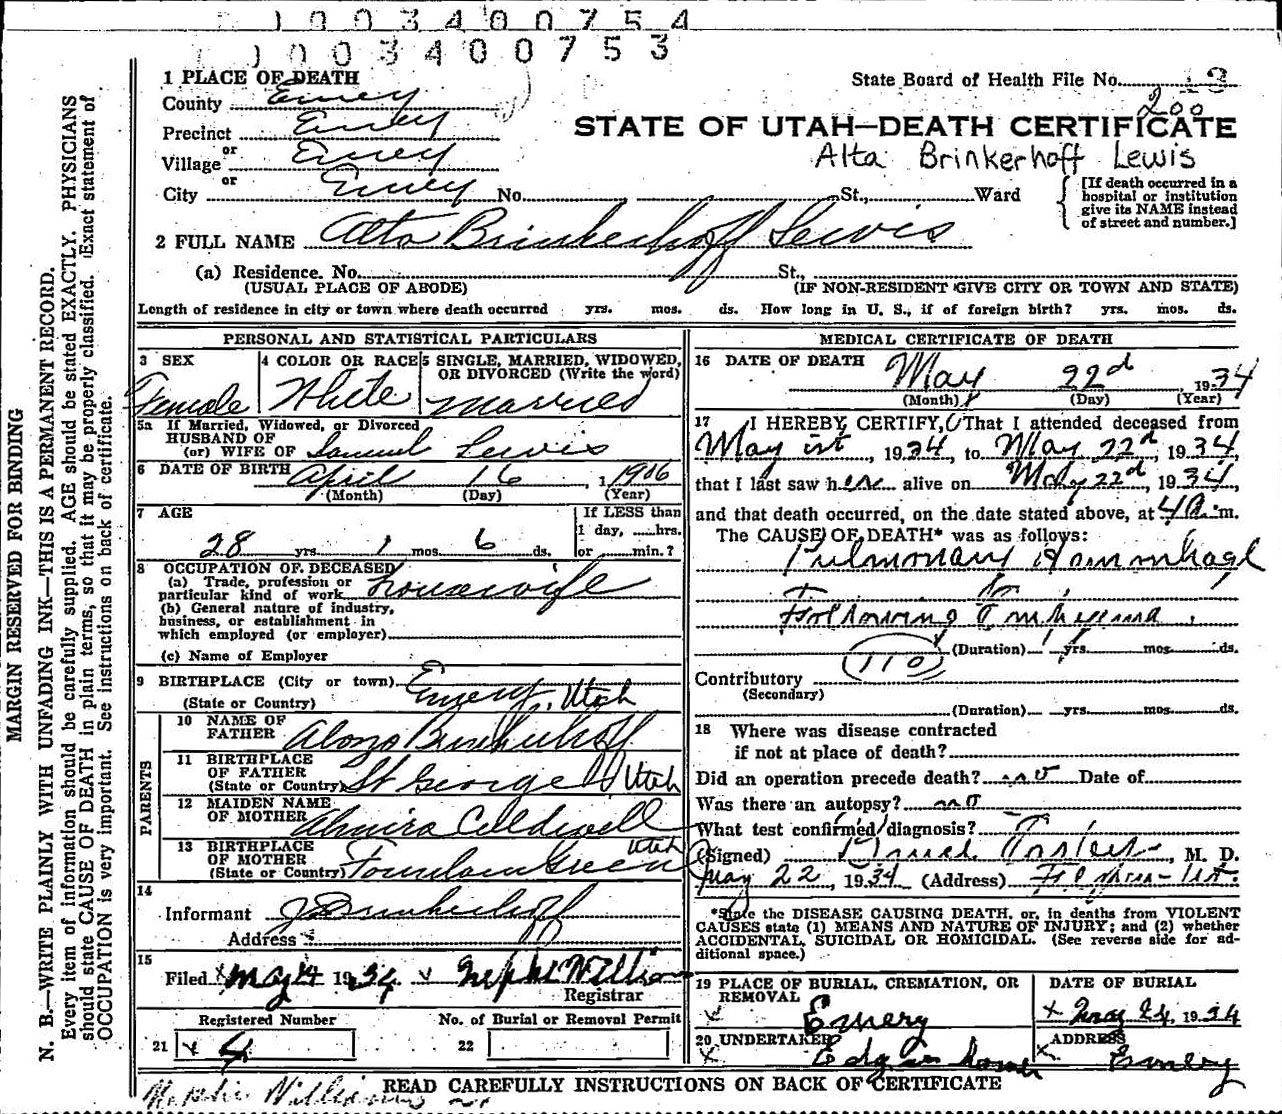 1 0 0 3 4 0 0 7 5 4
1 0 0 3 4 0 0 7 5 3
1 PLACE OF DEATH
State Board of Health File No. 13
County Emery
200
Precinct Emery
STATE OF UTAH—DEATH CERTIFICATE
or
Village Emery
Alta Brinkerhoff Lewis
or
City Emery No. St., Ward
[If death occurred in a hospital or institution give its NAME instead of street and number.]
2 FULL NAME Alta Brinkerhoff Lewis
(a) Residence. No. St.,
(USUAL PLACE OF ABODE) (IF NON-RESIDENT GIVE CITY OR TOWN AND STATE)
Length of residence in city or town where death occurred yrs. mos. ds. How long in U. S., if of foreign birth? yrs. mos. ds.
PERSONAL AND STATISTICAL PARTICULARS
3 SEX 4 COLOR OR RACE 5 SINGLE, MARRIED, WIDOWED,
OR DIVORCED (Write the word)
Female White Married
5a If Married, Widowed, or Divorced
HUSBAND OF
(or) WIFE OF Samuel Lewis
6 DATE OF BIRTH April 16, 1906
(Month) (Day) (Year)
7 AGE If LESS than
1 day, hrs.
28 yrs. 1 mos. 6 ds. or min.?
8 OCCUPATION OF DECEASED
(a) Trade, profession or
particular kind of work housewife
(b) General nature of industry,
business, or establishment in
which employed (or employer)
(c) Name of Employer
9 BIRTHPLACE (City or town) Emery, Utah
(State or Country)
PARENTS
10 NAME OF
FATHER Alonzo Brinkerhoff
11 BIRTHPLACE
OF FATHER
(State or Country) St George Utah
12 MAIDEN NAME
OF MOTHER Almira Caldwell
13 BIRTHPLACE
OF MOTHER Utah
(State or Country) Fountain Green
14
Informant J Brinkerhoff
Address
15
Filed May 24 1934 Nephi Williams
Registrar
Registered Number No. of Burial or Removal Permit
21 4 22
MEDICAL CERTIFICATE OF DEATH
16 DATE OF DEATH May 22d, 1934
(Month) (Day) (Year)
17 I HEREBY CERTIFY, That I attended deceased from
May 1st, 1934, to May 22d, 1934,
that I last saw her alive on May 22d, 1934,
and that death occurred, on the date stated above, at 4 a. m.
The CAUSE OF DEATH* was as follows:
Pulmonary
Following Emphyema
(Duration) yrs. mos. ds.
110
Contributory
(Secondary)
(Duration) yrs. mos. ds.
18 Where was disease contracted
if not at place of death?
Did an operation precede death? no Date of
Was there an autopsy? no
What test confirmed diagnosis?
(Signed) , M. D.
May 22, 1934 (Address)
*State the DISEASE CAUSING DEATH, or, in deaths from VIOLENT
CAUSES state (1) MEANS AND NATURE OF INJURY; and (2) whether
ACCIDENTAL, SUICIDAL OR HOMICIDAL. (See reverse side for ad-
ditional space.)
19 PLACE OF BURIAL, CREMATION, OR DATE OF BURIAL
REMOVAL
x Emery x May 24, 1934
20 UNDERTAKER ADDRESS
x Edgar x Emery
READ CAREFULLY INSTRUCTIONS ON BACK OF CERTIFICATE
Nephi Williams
MARGIN RESERVED FOR BINDING
N. B.—WRITE PLAINLY WITH UNFADING INK—THIS IS A PERMANENT RECORD.
Every item of information should be carefully supplied. AGE should be stated EXACTLY. PHYSICIANS
should state CAUSE OF DEATH in plain terms, so that it may be properly classified. Exact statement of
OCCUPATION is very important. See instructions on back of certificate.